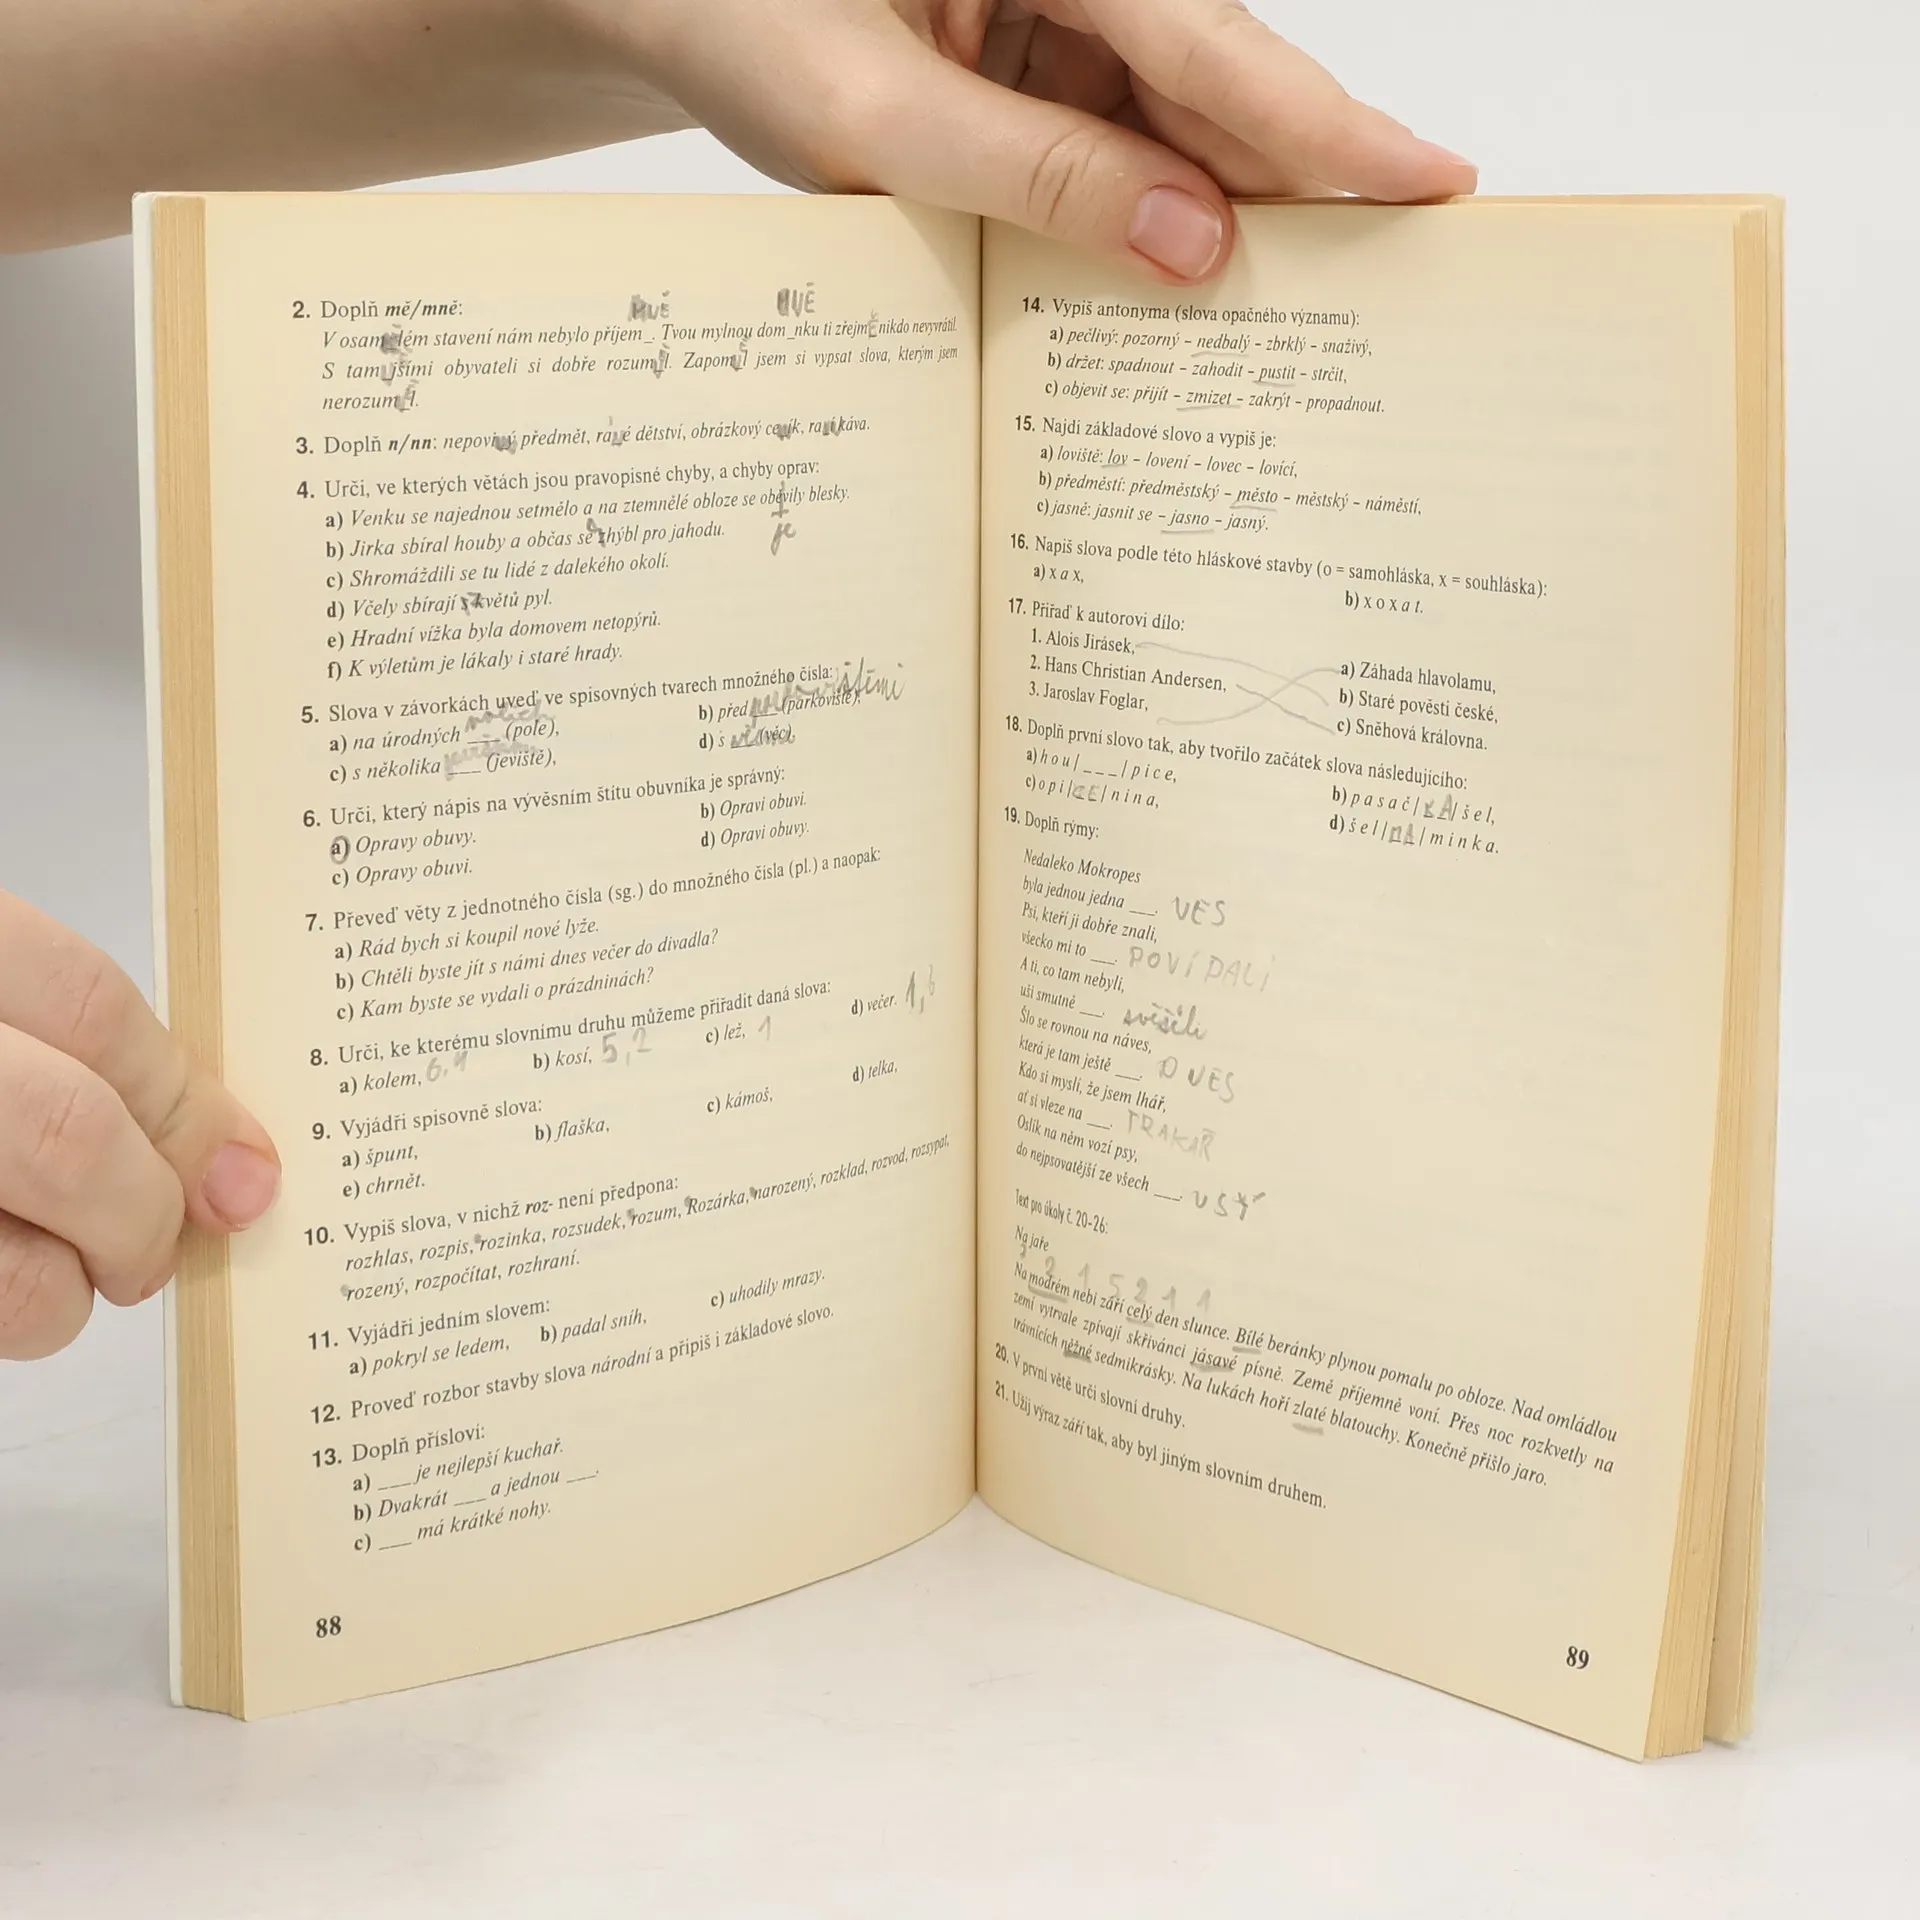 2. Doplň mě/mně:
MUĚ MUĚ
V osam_lém stavení nám nebylo příjem_. Tvou mylnou dom_nku ti zřejmě nikdo nevyvrátil.
S tam_jšími obyvateli si dobře rozum_l. Zapom_l jsem si vypsat slova, kterým jsem
nerozum_l.
3. Doplň n/nn: nepovi_ý předmět, ra_é dětství, obrázkový ce_ík, ra_í káva.
4. Urči, ve kterých větách jsou pravopisné chyby, a chyby oprav:
a) Venku se najednou setmělo a na ztemnělé obloze se obevily blesky.
je
b) Jirka sbíral houby a občas se zhýbl pro jahodu.
c) Shromáždili se tu lidé z dalekého okolí.
d) Včely sbírají s květů pyl.
e) Hradní vížka byla domovem netopýrů.
f) K výletům je lákaly i staré hrady.
5. Slova v závorkách uveď ve spisovných tvarech množného čísla:
a) na úrodných ___ (pole),
b) před ___ (parkoviště),
c) s několika ___ (jeviště),
d) s ___ (věc).
6. Urči, který nápis na vývěsním štítu obuvníka je správný:
a) Opravy obuvy.
b) Opravi obuvi.
c) Opravy obuvi.
d) Opravi obuvy.
7. Převeď věty z jednotného čísla (sg.) do množného čísla (pl.) a naopak:
a) Rád bych si koupil nové lyže.
b) Chtěli byste jít s námi dnes večer do divadla?
c) Kam byste se vydali o prázdninách?
8. Urči, ke kterému slovnímu druhu můžeme přiřadit daná slova:
a) kolem, b) kosí, 5,2 c) lež, 1 d) večer. 1,6
9. Vyjádři spisovně slova:
a) špunt, b) flaška, c) kámoš, d) telka,
e) chrnět.
10. Vypiš slova, v nichž roz- není předpona:
rozhlas, rozpis, rozinka, rozsudek, rozum, Rozárka, narozený, rozklad, rozvod, rozsypat,
rozený, rozpočítat, rozhraní.
11. Vyjádři jedním slovem:
a) pokryl se ledem, b) padal sníh, c) uhodily mrazy.
12. Proveď rozbor stavby slova národní a připiš i základové slovo.
13. Doplň přísloví:
a) ___ je nejlepší kuchař.
b) Dvakrát ___ a jednou ___.
c) ___ má krátké nohy.
88
14. Vypiš antonyma (slova opačného významu):
a) pečlivý: pozorný – nedbalý – zbrklý – snaživý,
b) držet: spadnout – zahodit – pustit – strčit,
c) objevit se: přijít – zmizet – zakrýt – propadnout.
15. Najdi základové slovo a vypiš je:
a) loviště: lov – lovení – lovec – lovící,
b) předměstí: předměstský – město – městský – náměstí,
c) jasně: jasnit se – jasno – jasný.
16. Napiš slova podle této hláskové stavby (o = samohláska, x = souhláska):
a) x a x,
b) x o x a t.
17. Přiřaď k autorovi dílo:
1. Alois Jirásek,
2. Hans Christian Andersen,
3. Jaroslav Foglar,
a) Záhada hlavolamu,
b) Staré pověsti české,
c) Sněhová královna.
18. Doplň první slovo tak, aby tvořilo začátek slova následujícího:
a) h o u / _ _ _ / p i c e,
b) p a s a č / KA / š e l,
c) o p i / CE / n i n a,
d) š e l / MA / m i n k a.
19. Doplň rýmy:
Nedaleko Mokropes
byla jednou jedna ___. VES
Psi, kteří ji dobře znali,
všecko mi to ___. POVÍDALI
A ti, co tam nebyli,
uši smutně ___. svěsili
Šlo se rovnou na náves,
která je tam ještě ___. DNES
Kdo si myslí, že jsem lhář,
ať si vleze na ___. TRAKAŘ
Oslík na něm vozí psy,
do nejpsovatější ze všech ___. VSÍ
Text pro úkoly č. 20–26:
Na jaře
2 1 5 2 1 1
Na modrém nebi září celý den slunce. Bílé beránky plynou pomalu po obloze. Nad omládlou
zemí vytrvale zpívají skřivánci jásavé písně. Země příjemně voní. Přes noc rozkvetly na
trávnících něžné sedmikrásky. Na lukách hoří zlaté blatouchy. Konečně přišlo jaro.
20. V první větě urči slovní druhy.
21. Užij výraz září tak, aby byl jiným slovním druhem.
89